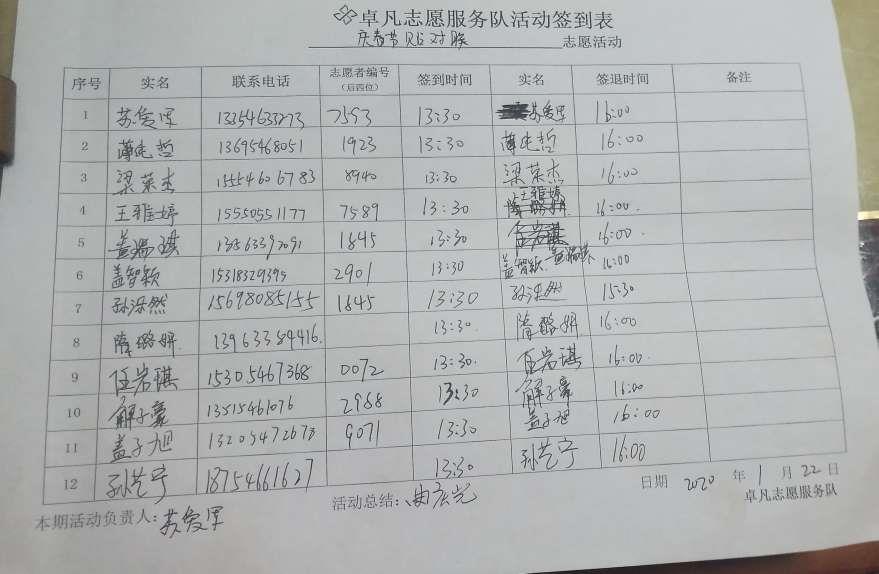 卓凡志愿服务队活动签到表
庆春节贴对联 志愿活动
序号 实名 联系电话 志愿者编号（后四位） 签到时间 实名 签退时间 备注
1 苏爱军 7593 13:30 苏爱军 16:00
2 薄纯哲 13695468051 1923 13:30 薄纯哲 16:00
3 梁荣杰 15554606783 8940 13:30 梁荣杰 16:00
4 王雅婷 15550551177 7589 13:30 王雅婷 16:00
5 盖瑞琪 13563397091 1845 13:30 16:00
6 盖智颖 15318329395 2901 13:30 盖智颖 盖瑞琪 16:00
7 孙泺然 15698085155 1845 13:30 孙泺然 15:30
8 隋璐妍 13963384416 13:30 隋璐妍 16:00
9 任岩琪 15305467368 0072 13:30 任岩琪 16:00
10 解子豪 13515461076 2988 13:30 解子豪 16:00
11 盖子旭 13205472678 9071 13:30 盖子旭 16:00
12 孙艺宁 18754661627 13:30 孙艺宁 16:00
日期 2020 年 1 月 22 日
本期活动负责人：苏爱军 活动总结：曲宏光 卓凡志愿服务队